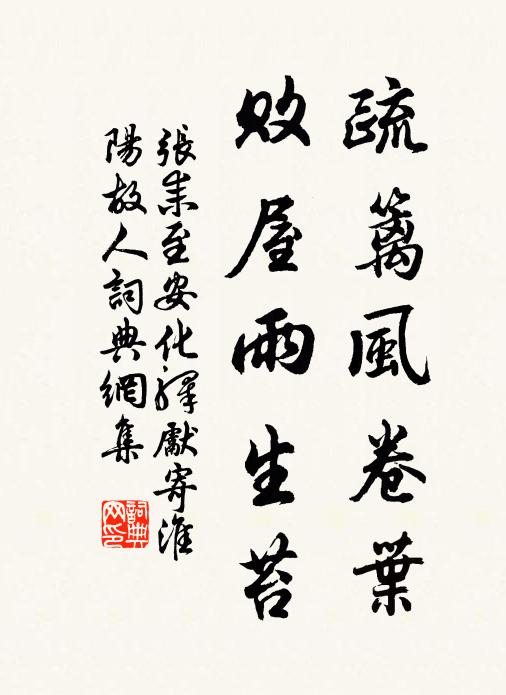 疏籬風卷葉
敗屋雨生苔
張耒至安化驛獻寄淮
陽故人詞典網集
詞典网印